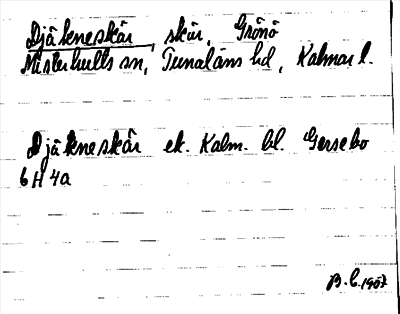 Djäkneskär, skär, Grönö
Misterhults sn, Tunaläns hd, Kalmar l.
Djäkneskär ek. Kalm. bl. Gersebo
6H 4a
B.C. 1957